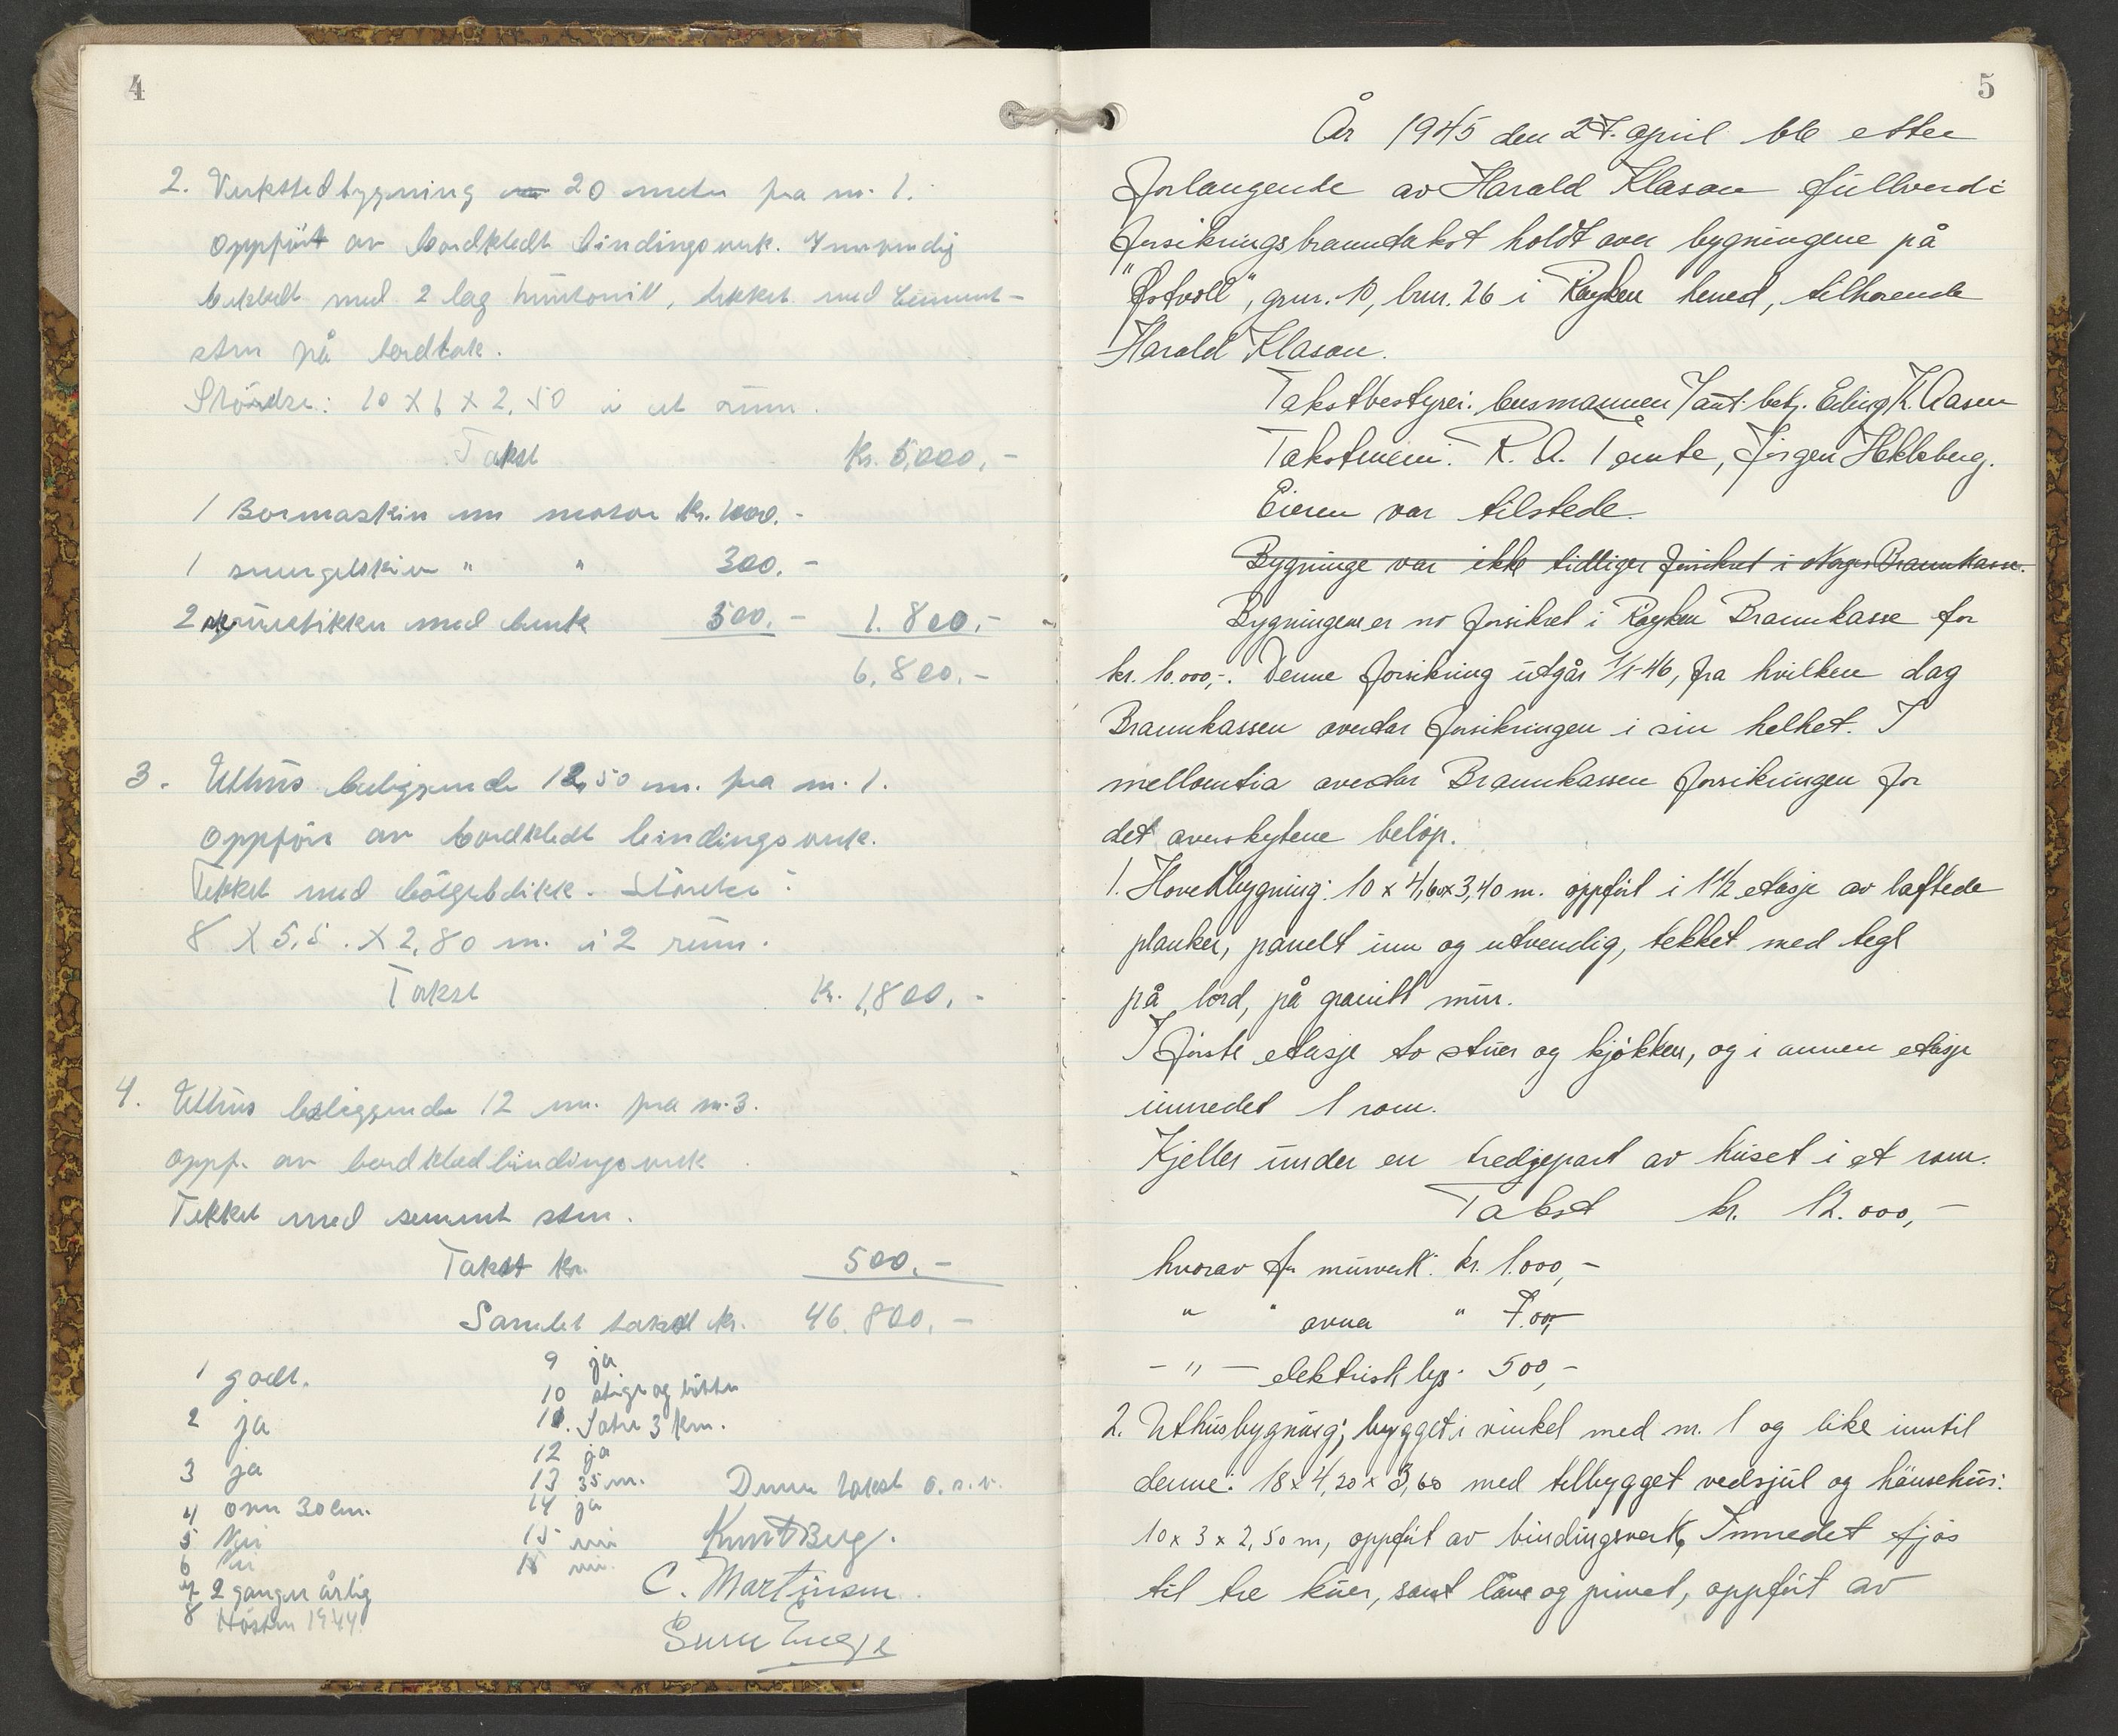 4
2. Verkstedbygning 20 meter fra nr. 1.
oppført av bordkledt bindingsverk. Innvendig
bekledt med 2 lag huntonitt, tekket med Cement-
sten på bordtak.
Størrelse: 10 X 6 X 2,50 i et rum.
Takst Kr. 5,000,-
1 Bormaskin m motor Kr. 1000.-
1 smergelskive " " 300.-
2 skruestikker med benk 500.- 1.800,-
6,800.-
3. Uthus beliggende 12,50 m. fra nr. 1.
oppført av bordkledt bindingsverk.
Tekket med bølgeblikk. Størrelse:
8 X 5,5. X 2,80 m. i 2 rum.
Takst Kr. 1,800,-
4. Uthus beliggende 12 m. fra nr. 3.
oppf. av bordkled bindingsverk
Tekket med sement sten.
Takst kr. 500.-
Samlet takst kr. 46.800,-
1 godt.
2 ja
3 ja
4 over 30 cm.
5 Nei
6 Nei
7 2 ganger årlig
8 Høsten 1944.
9 ja
10 stige og bøtter
11. Sætre 3 km.
12 ja
13 35 m.
14 ja
15 nei
16 nei.
Denne takst o.s.v.
Knut Berg.
C. Martinsen
Enge
5
År 1945 den 27. april ble etter
forlangende av Harald Klasson fullverdi
forsikringsbranntakst holdt over bygningene på
"Østvoll", gnr. 10, bnr. 26 i Røyken herred, tilhørende
Harald Klasson.
Takstbestyrer: lensmannen / aut. betj. Erling K. Aasen
Takstmenn: R. A. Tømte, Jørgen Hekleberg.
Eieren var tilstede.
Bygninge var ikke tidliger forsikret i Norges Brannkasse.
Bygningene er no forsikret i Røyken Brannkasse for
kr. 10.000,-. Denne forsikring utgår 1/1-46, fra hvilken dag
Brannkassen overtar forsikringen i sin helhet. I
mellomtia overtar Brannkassen forsikringen for
det overskytene beløp.
1. Hovedbygning: 10 x 4,60 x 3,40 m. oppført i 1 1/2 etasje av laftede
planker, panelt inn og utvendig, tekket med tegl
på bord, på granitt mur.
I første etasje to stuer og kjøkken, og i annen etasje
innredet 1 rom.
Kjeller under en tredjepart av huset i et rom.
Takst kr. 12.000,-
hvorav for murverk: kr. 1.000,-
" " ovner " 700,-
- " - elektrisk lys. 500,-
2. Uthusbygning; bygget i vinkel med nr. 1 og like inntil
denne: 18 x 4,20 x 3,60 med tilbygget vedsjul og hønsehus:
10 x 3 x 2,50 m, oppført av bindingsverk, Innredet fjøs
til tre kuer, samt låve og privet, oppført av